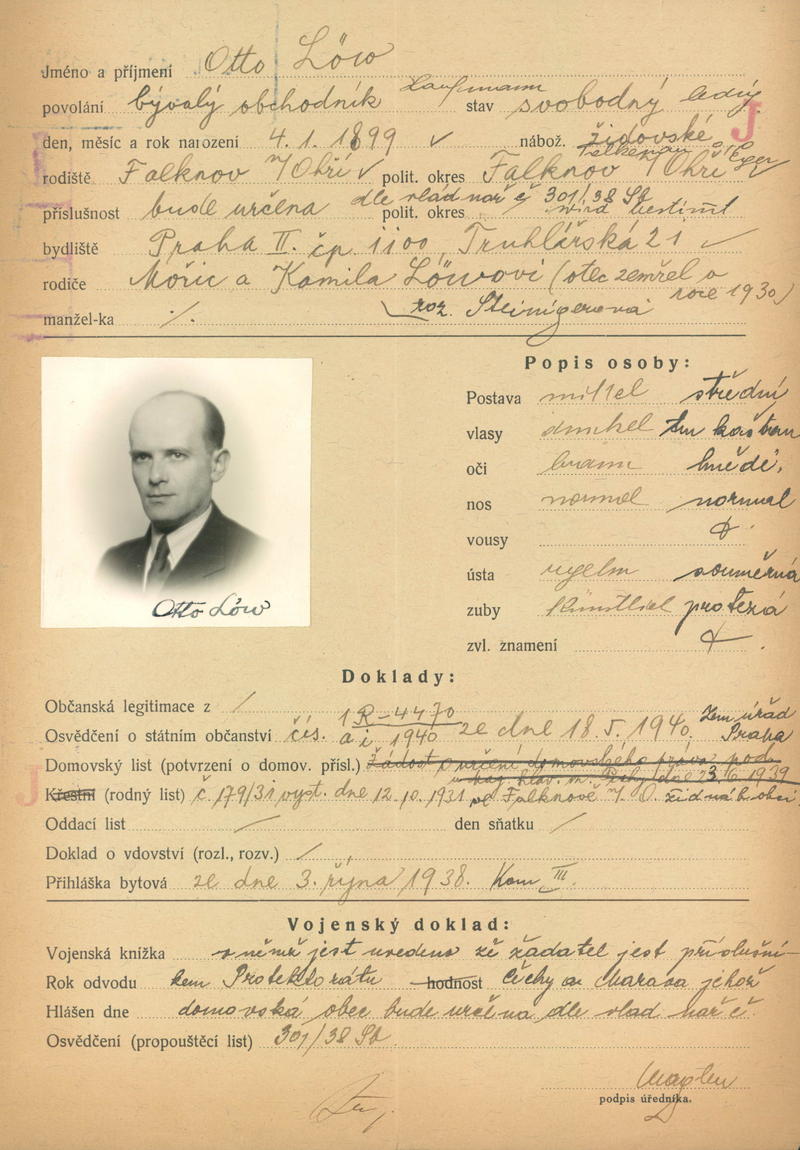 Jméno a příjmení Otto Löw
Kaufmann
povolání bývalý obchodník stav svobodný ledig
J
den, měsíc a rok narození 4.1.1899 ✓ nábož. židovské
Falkenau a/Eger
rodiště Falknov n/Ohří ✓ polit. okres Falknov n/Ohří
dle vlád nař č 301/38 Sb
příslušnost bude určena polit. okres wird bestimmt
bydliště Praha II. čp. 1100, Truhlářská 21 ✓
rodiče Mořic a Kamila Löwovi (otec zemřel v
roce 1930)
manžel-ka ./. roz. Steinigerová
Popis osoby:
Postava mittel střední
vlasy dunkel tm kaštan
oči braun hnědé,
nos normal normal
vousy
ústa souměrná
zuby künstlich protezá
zvl. znamení
Otto Löw
Doklady:
Občanská legitimace z /
1 R-4470
Zem úřad
Osvědčení o státním občanství čís. a i 1940 ze dne 18.5.1940. Praha
Domovský list (potvrzení o domov. přísl.) žádost o určení domovského práva pod.
u mag. hlav. m. Prahy dne 23.6.1939
J
Křestní (rodný list) č 179/31 vyst. dne 12.10.1931 ve Falknově n/O. žid náb obcí
Oddací list / den sňatku /
Doklad o vdovství (rozl., rozv.) /
Přihláška bytová ze dne 3. října 1938. Kom III.
Vojenský doklad:
Vojenská knížka v němž jest uvedeno že žadatel jest příslušní-
Rok odvodu kem Protektorátu hodnost Čechy a Morava jehož
Hlášen dne domovská obec bude určena dle vlad nař č.
Osvědčení (propouštěcí list) 301/38 Sb.
podpis úředníka.